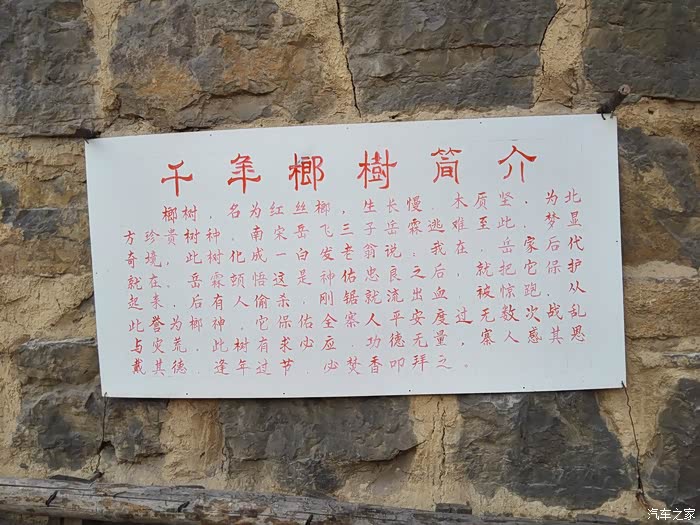 千年榔樹简介
榔树，名为红丝榔，生长慢．木质坚，为北
方珍贵树种．南宋岳飞三子岳霖逃难至此，梦显
奇境，此树化成一白发老翁说：我在，岳家后代
就在．岳霖顿悟这是神佑忠良之后，就把它保护
起来，后有人偷杀，刚锯就流出血，被惊跑．从
此誉为榔神，它保佑全寨人平安度过无数次战乱
与灾荒．此树有求必应．功德无量，寨人感其恩
戴其德．逢年过节．必焚香叩拜之。
汽车之家